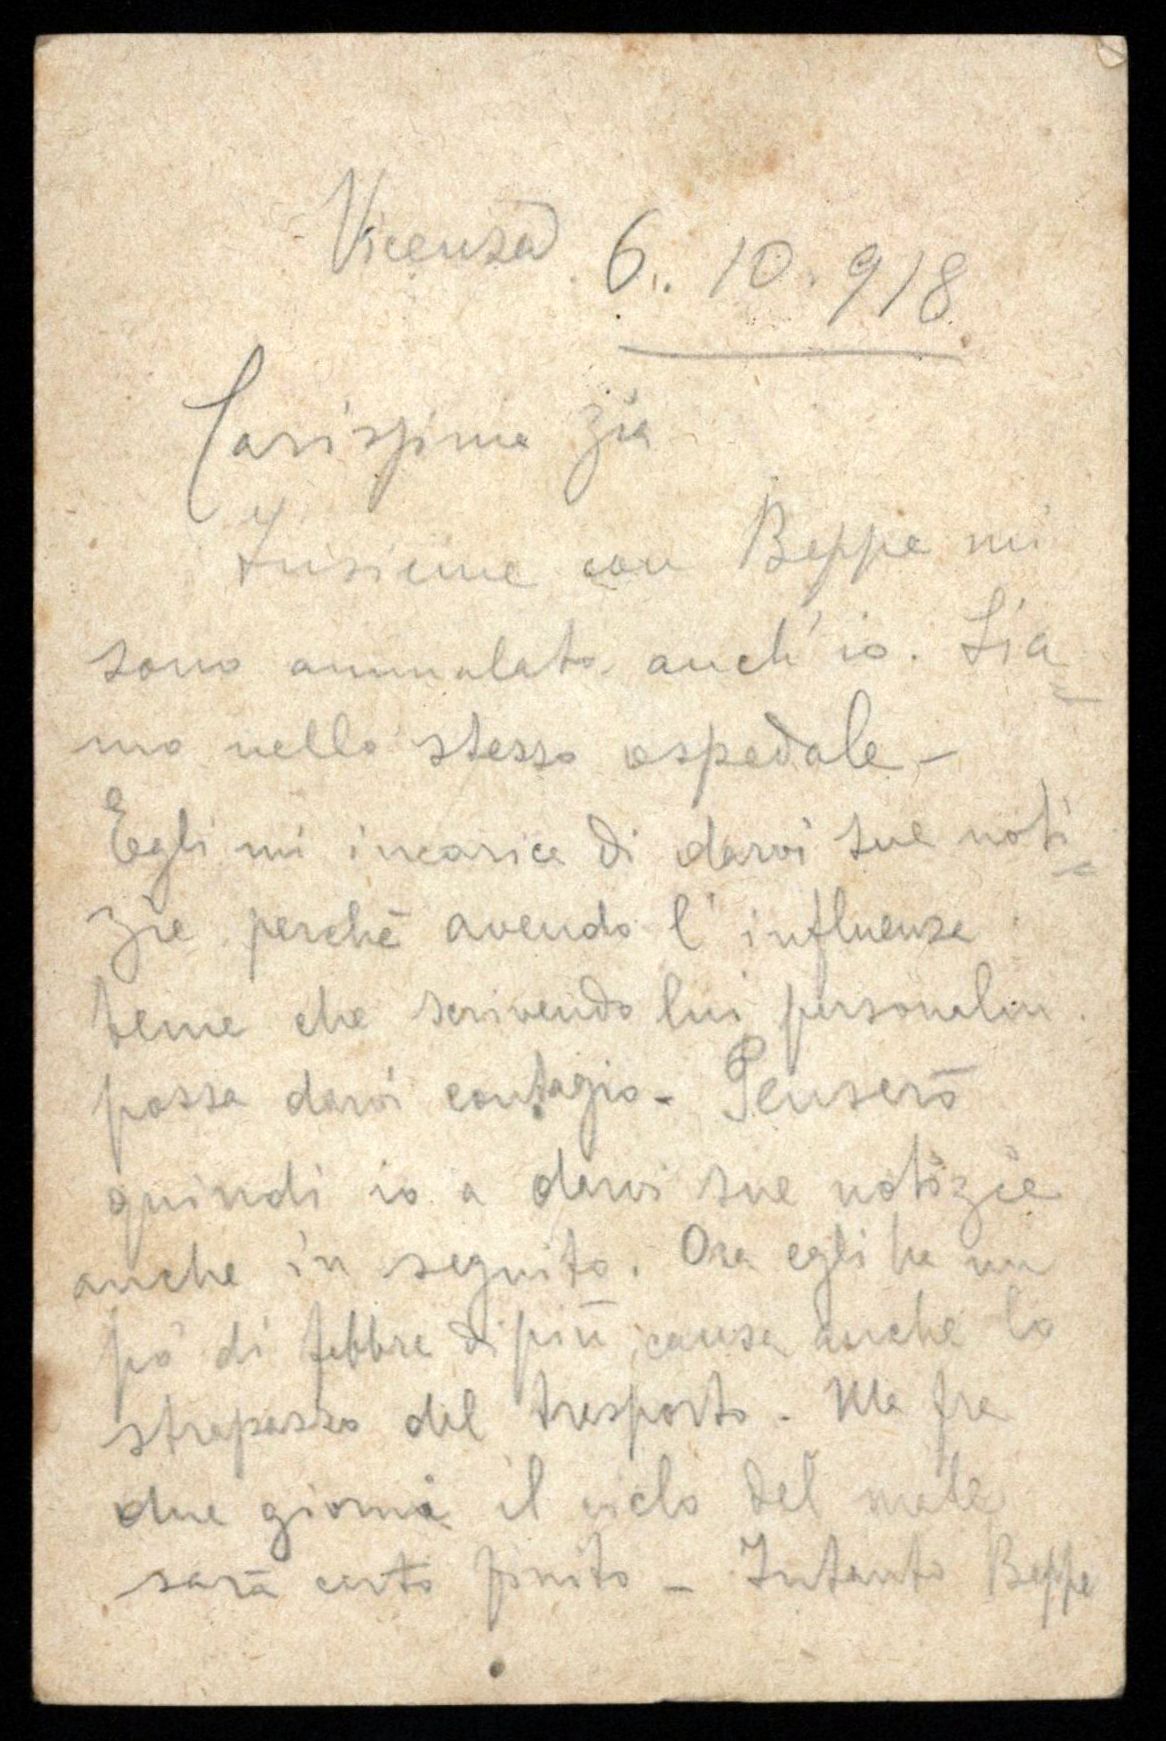 Vicenza 6. 10. 918
Carissima zia
Insieme con Beppe mi
sono ammalato anch'io. Sia=
mo nello stesso ospedale -
Egli mi incarica di darvi sue noti=
zie perchè avendo l'influenza
teme che scrivendo lui personalm.
possa darvi contagio - Penserò
quindi io a darvi sue notizie
anche in seguito. Ora egli ha un
pò di febbre di più causa anche lo
strapazzo del trasporto. Ma fra
due giorni il ciclo del male
sarà certo finito - Intanto Beppe